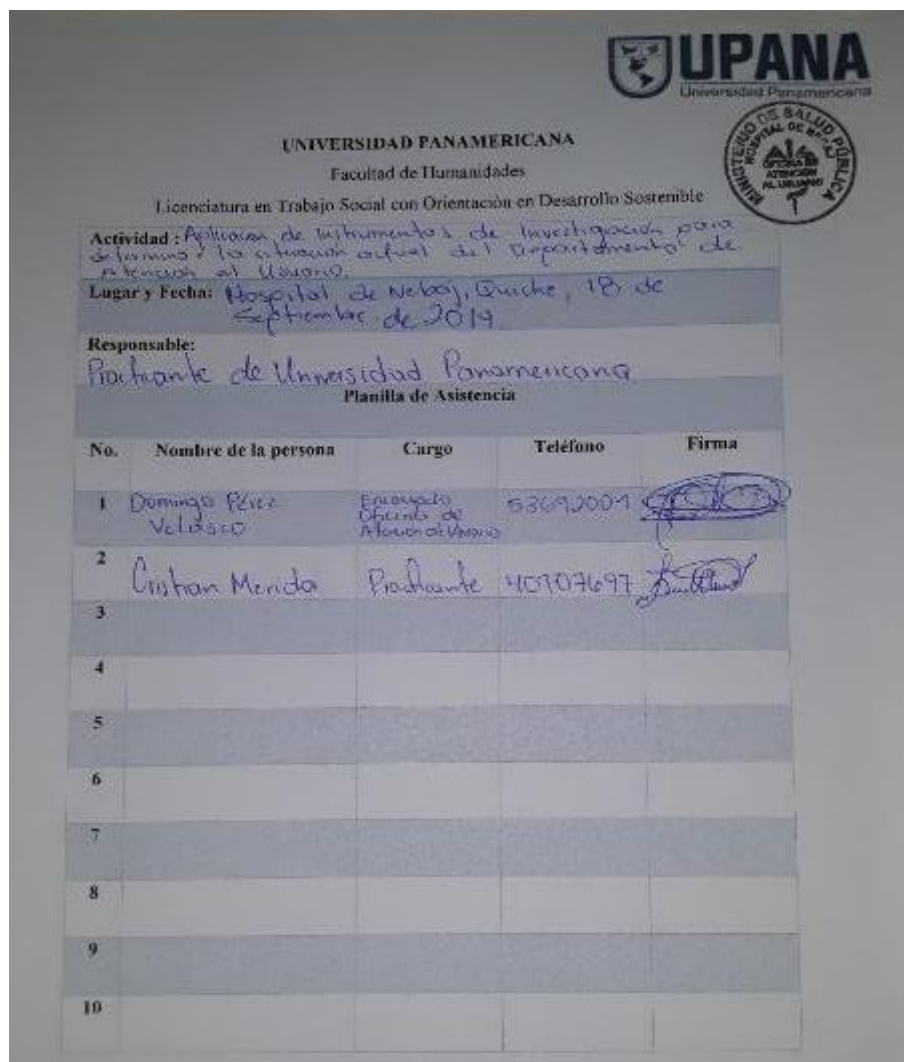 UPANA
Universidad Panamericana
MINISTERIO DE SALUD PÚBLICA
HOSPITAL DE
OFICINA DE
ATENCIÓN
AL USUARIO
UNIVERSIDAD PANAMERICANA
Facultad de Humanidades
Licenciatura en Trabajo Social con Orientación en Desarrollo Sostenible
Actividad : Aplicacion de Instrumentos de Investigación para
determinar la situación actual del Departamento de
Atencion al Usuario.
Lugar y Fecha: Hospital de Nebaj, Quiche, 18 de
Septiembre de 2019
Responsable:
Practicante de Universidad Panamericana
Planilla de Asistencia
No. Nombre de la persona Cargo Teléfono Firma
1 Domingo Pérez Velasco Encargado Oficina de Atencion al Usuario 53692001
2 Cristian Merida Practicante 40707697
3
4
5
6
7
8
9
10